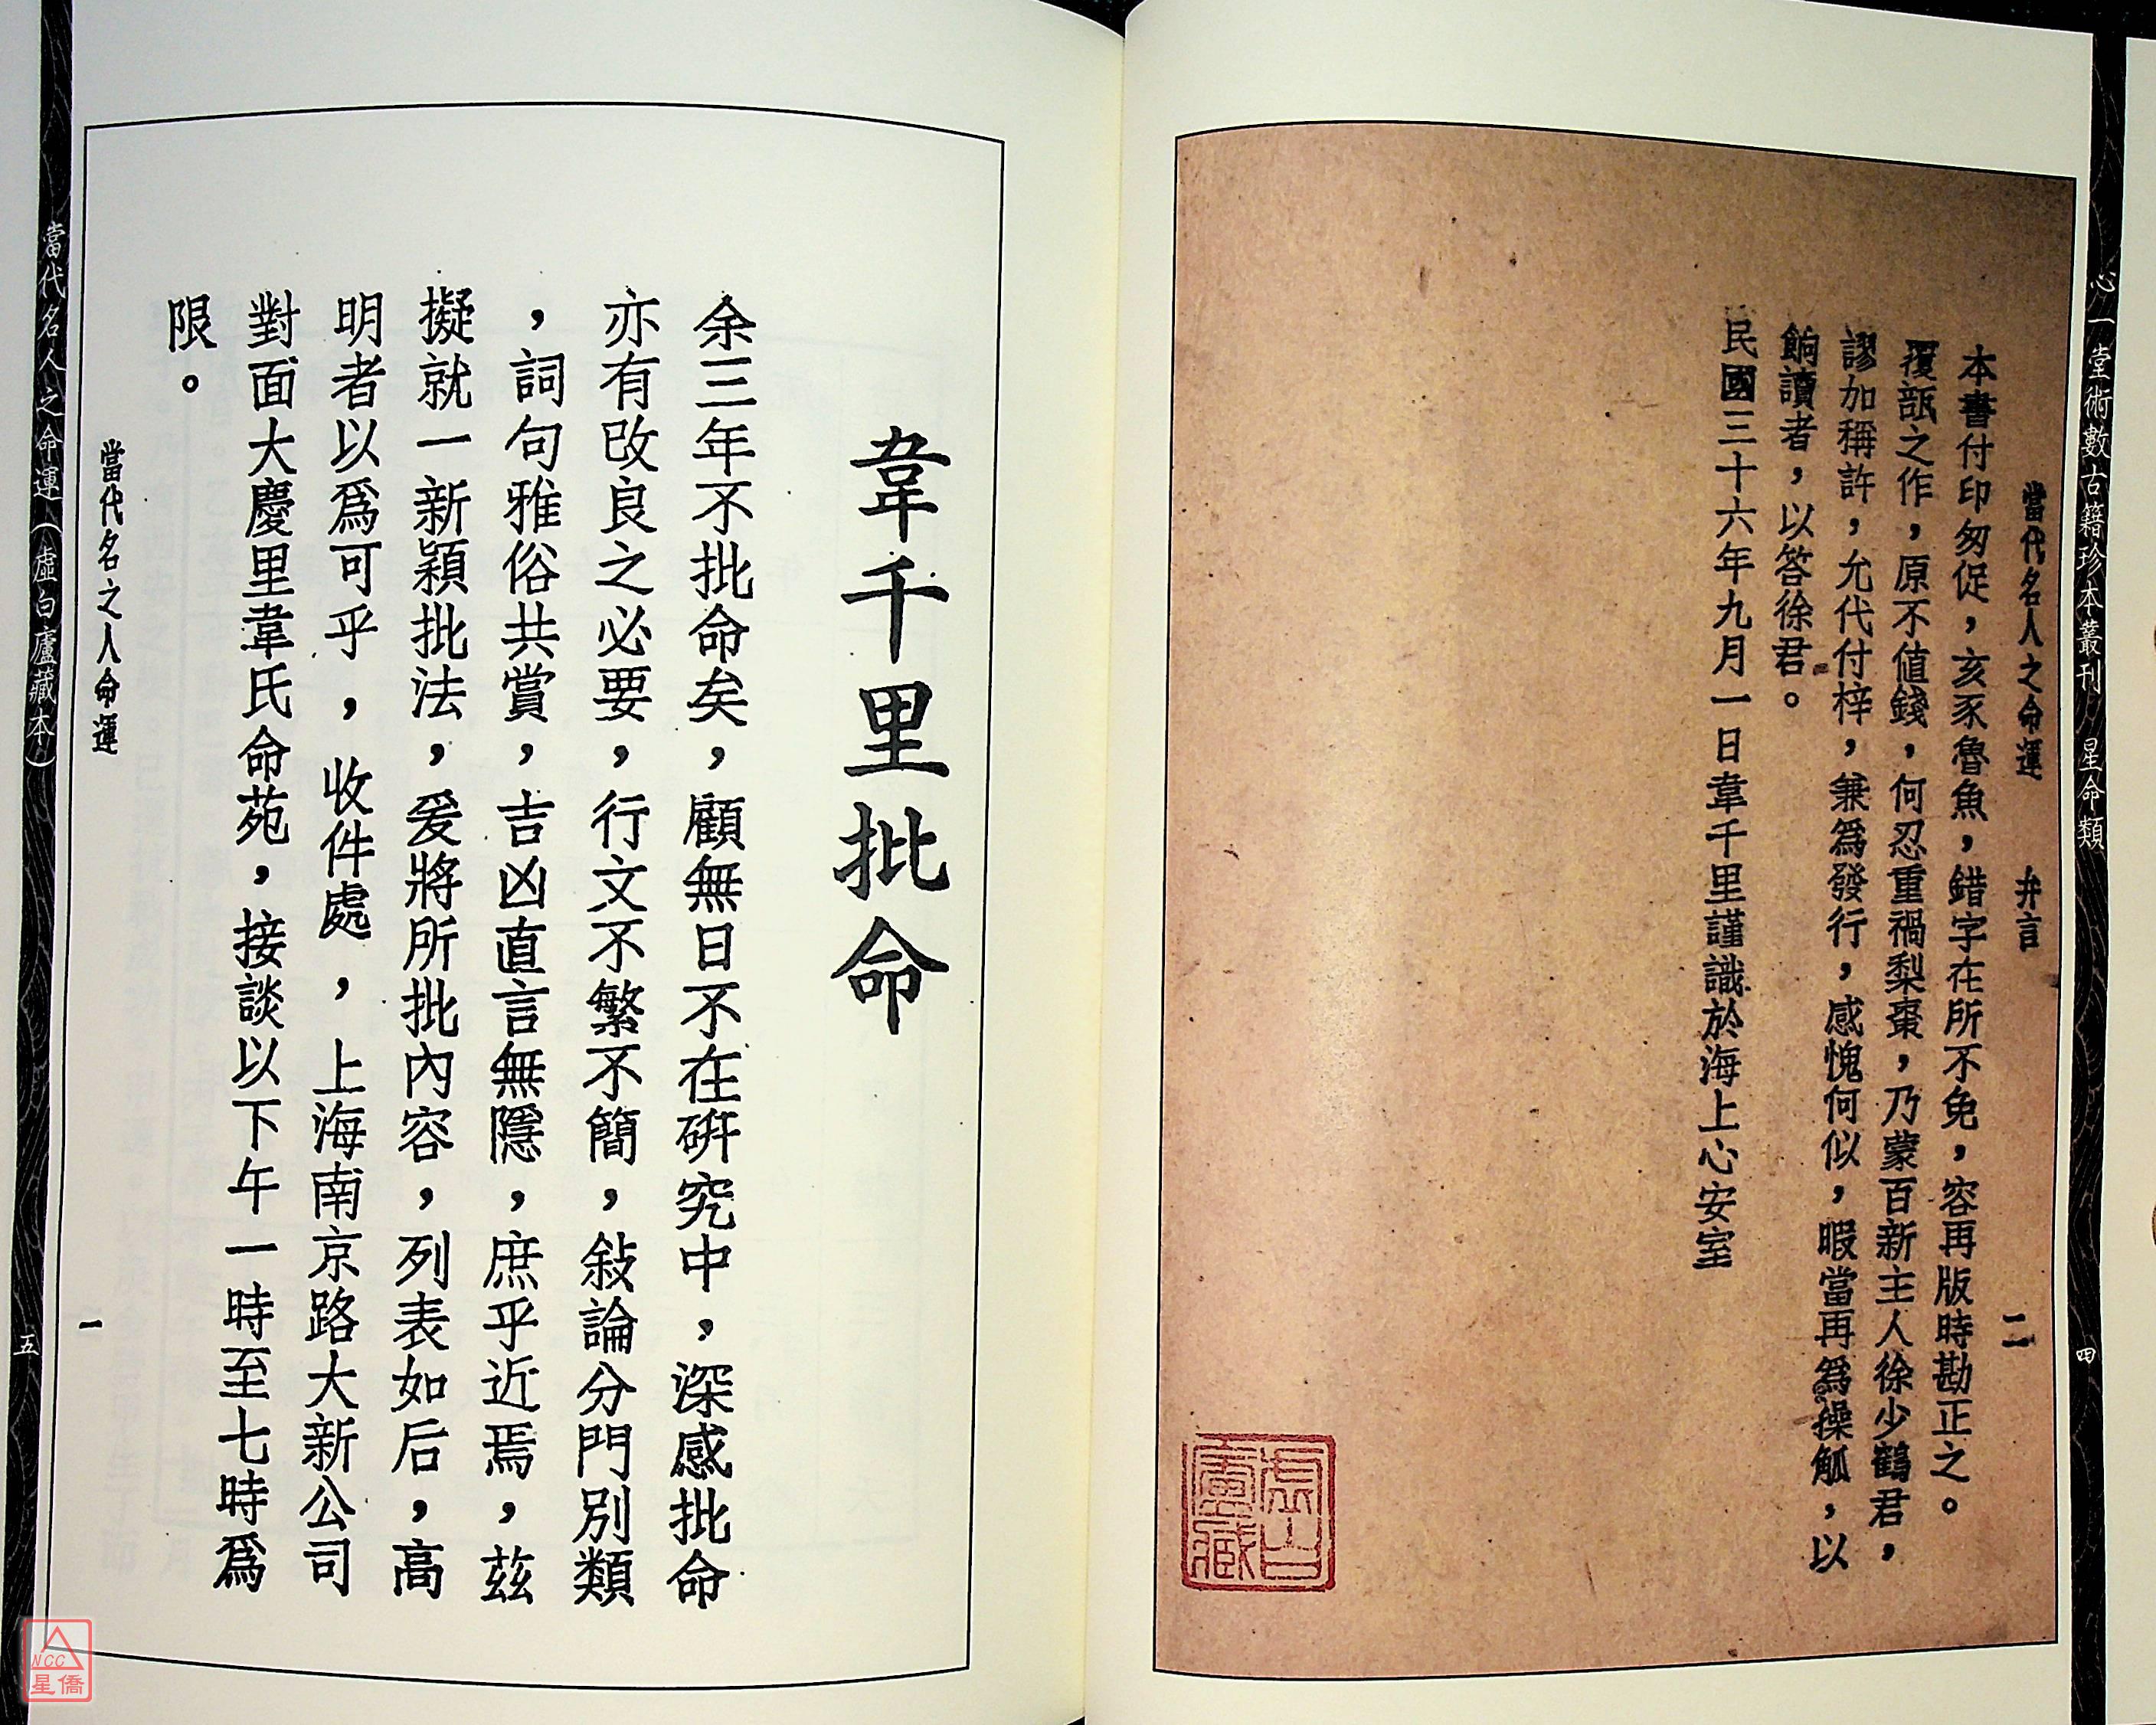 心一堂術數古籍珍本叢刊 星命類
四
當代名人之命運 弁言 二
本書付印匆促,亥豕魯魚,錯字在所不免,容再版時勘正之。
覆瓿之作,原不值錢,何忍重禍梨棗,乃蒙百新主人徐少鶴君,
謬加稱許,允代付梓,兼爲發行,感愧何似,暇當再爲操觚,以
餉讀者,以答徐君。
民國三十六年九月一日韋千里謹識於海上心安室
虛白廬藏
韋千里批命
余三年不批命矣,顧無日不在研究中,深感批命
亦有改良之必要,行文不繁不簡,敍論分門別類
,詞句雅俗共賞,吉凶直言無隱,庶乎近焉,茲
擬就一新穎批法,爰將所批內容,列表如后,高
明者以爲可乎,收件處,上海南京路大新公司
對面大慶里韋氏命苑,接談以下午一時至七時爲
限。
當代名之人命運 一
當代名人之命運(虛白廬藏本)
五
NCC
星僑